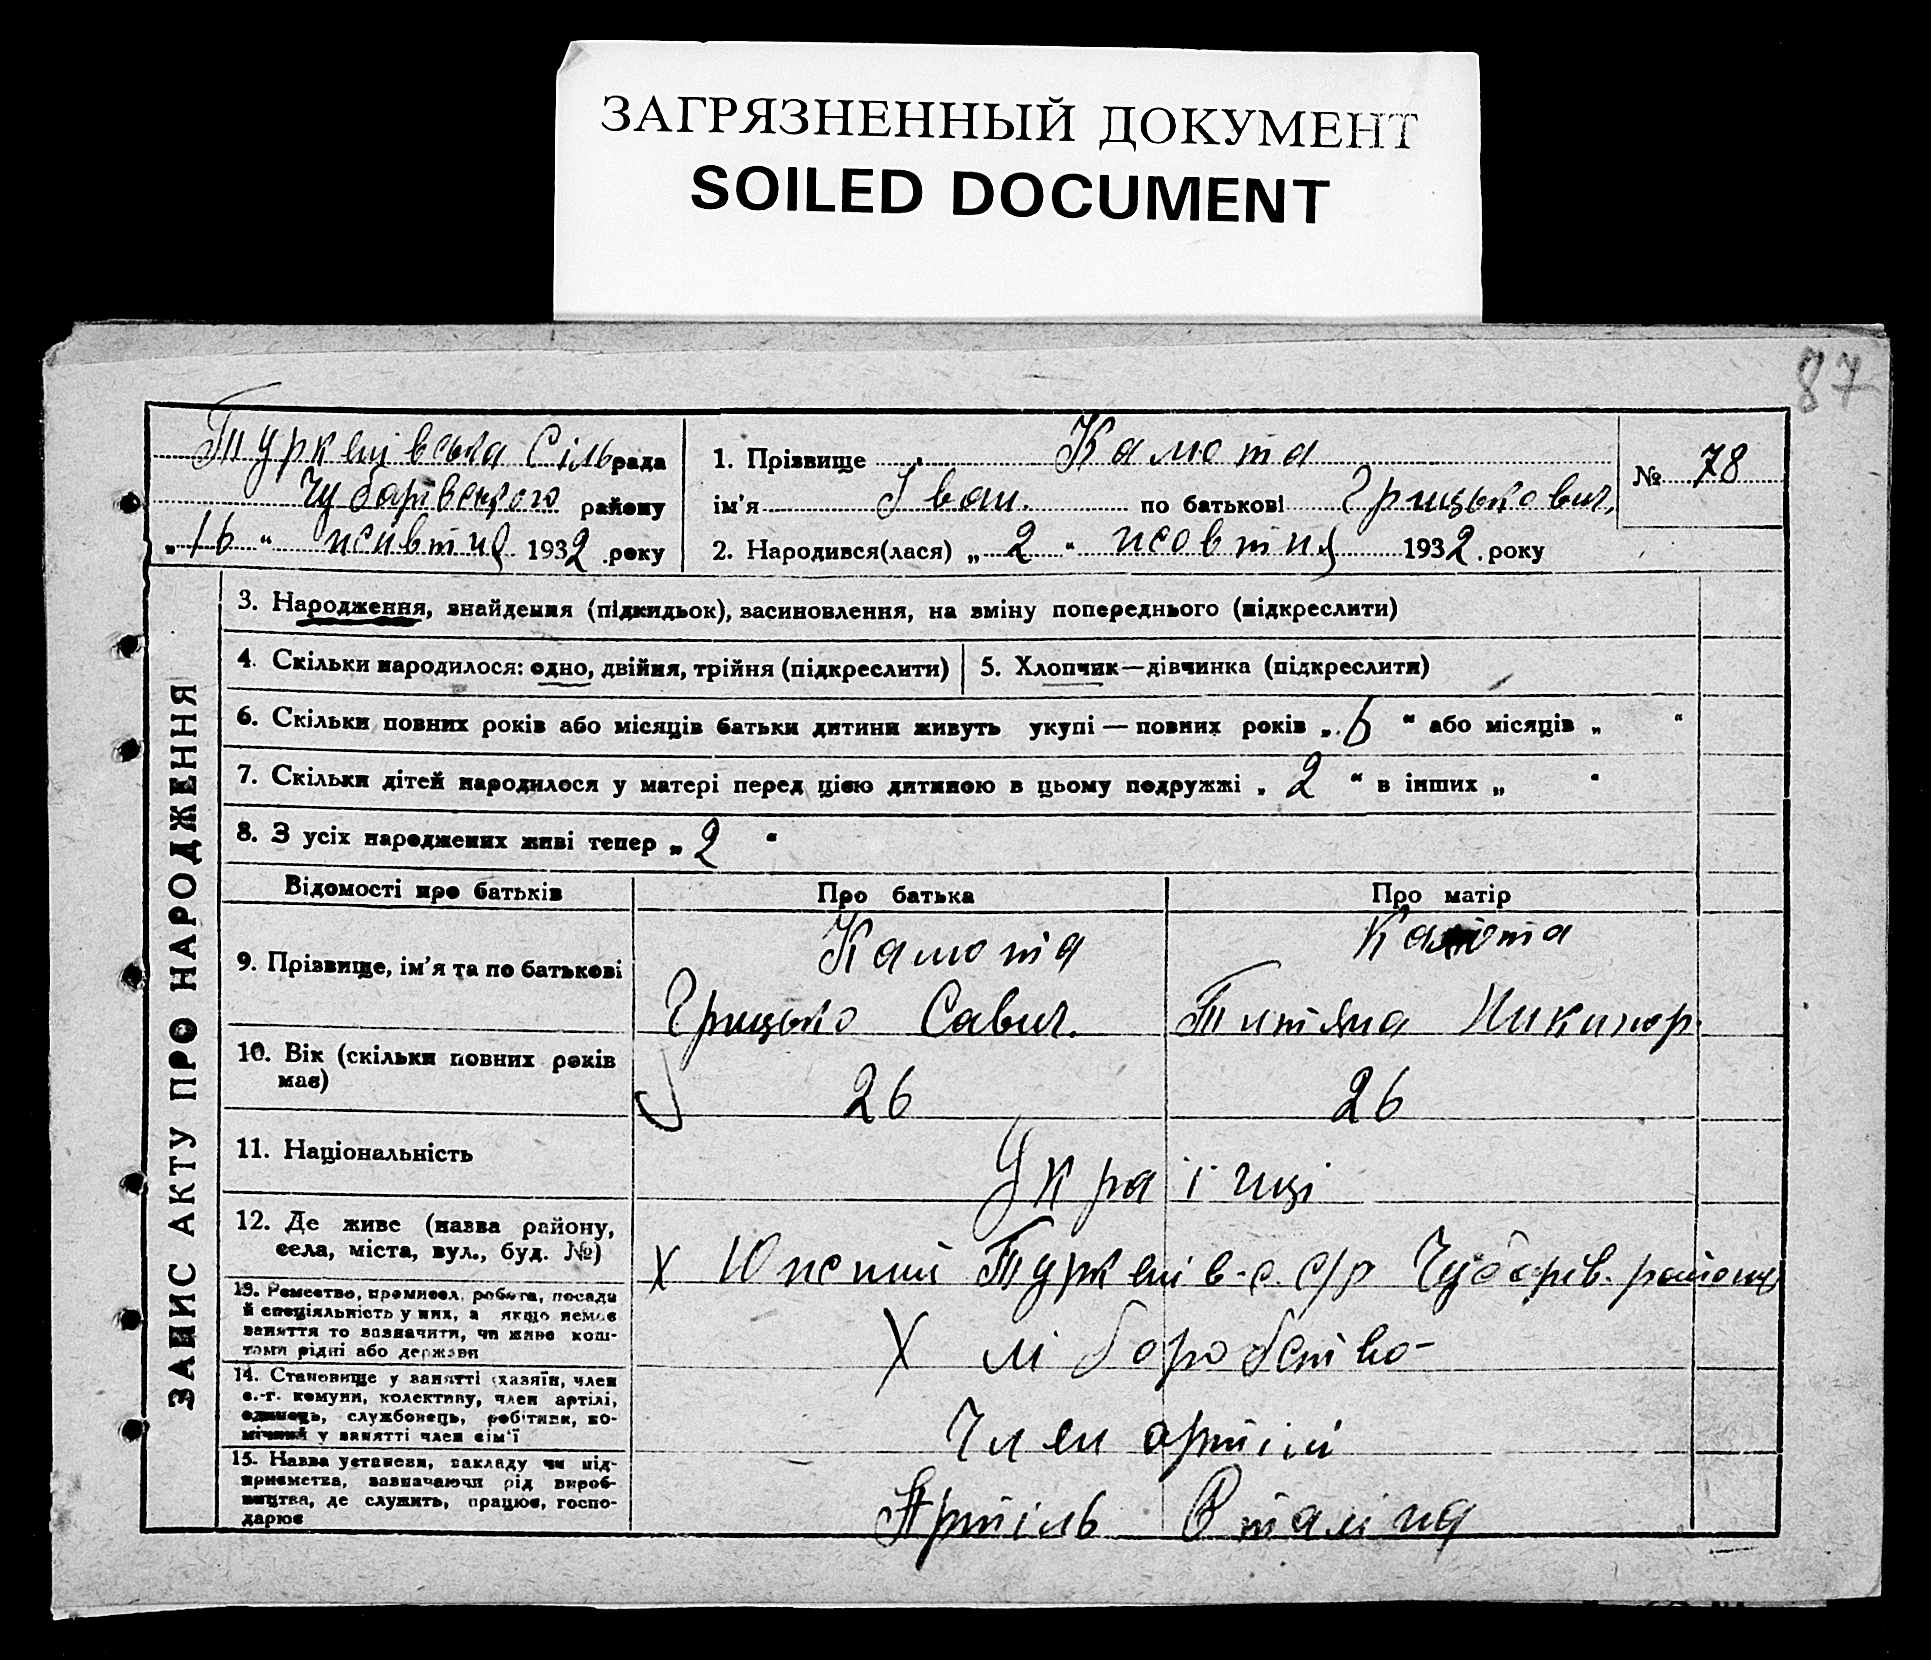 ЗАГРЯЗНЕННЫЙ ДОКУМЕНТ
SOILED DOCUMENT
87
Туркенівська Сільрада
Чубарівського району
„16“ жовтня 1932 року
1. Прізвище Камота
ім'я Іван. по батькові Грицькович.
2. Народився(лася) „2“ жовтня 1932 року
№ 78
ЗАПИС АКТУ ПРО НАРОДЖЕННЯ
3. Народження, знайдення (підкидьок), засиновлення, на зміну попереднього (підкреслити)
4. Скільки народилося: одно, двійня, трійня (підкреслити)
5. Хлопчик—дівчинка (підкреслити)
6. Скільки повних років або місяців батьки дитини живуть укупі — повних років „6“ або місяців „ “
7. Скільки дітей народилося у матері перед цією дитиною в цьому подружжі „2“ в інших „ “
8. З усіх народжених живі тепер „2“
Відомості про батьків Про батька Про матір
9. Прізвище, ім'я та по батькові
Камота Камота
Грицько Савич. Титяна Никинор.
10. Вік (скільки повних років має)
26 26
11. Національність
Українці
12. Де живе (назва району,
села, міста, вул., буд. №)
х Туркенів-с. с/р Чубарів. району
13. Ремество, промисел, робота, посада
й спеціяльність у них, а якщо немає
заняття то зазначити, чи живе кош-
тами рідні або держави
Х хліборобство
14. Становище у занятті (хазяїн, член
с.-г. комуни, колективу, член артілі,
одинець, службовець, робітник, по-
мічний у занятті член сім'ї
Член артілі
15. Назва установи, закладу чи під-
приємства, зазначаючи рід вироб-
ництва, де служить, працює, госпо-
дарює
Артіль Сталіна